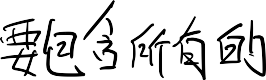 要包含所有的